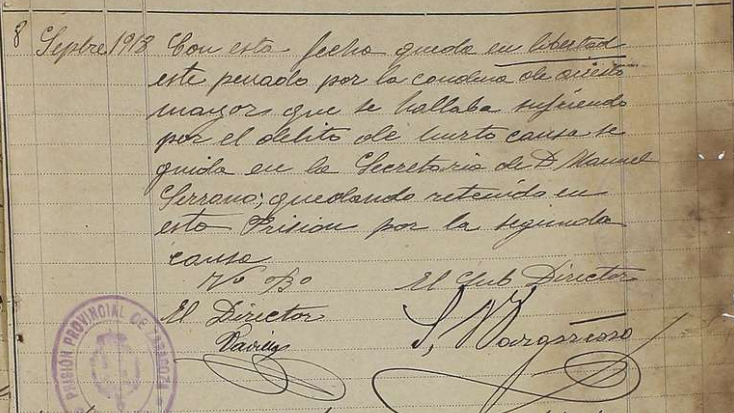 8 Septbre 1918 Con esta fecha queda en libertad
este penado por la condena de arresto
mayor que se hallaba sufriendo
por el delito de hurto causa se
guida en la Secretaria de D. Manuel
Serrano; quedando retenido en
esta Prision por la segunda
causa
Vº Bº El Sub Director
El Director
PRISIÓN PROVINCIAL DE ZARAGOZA